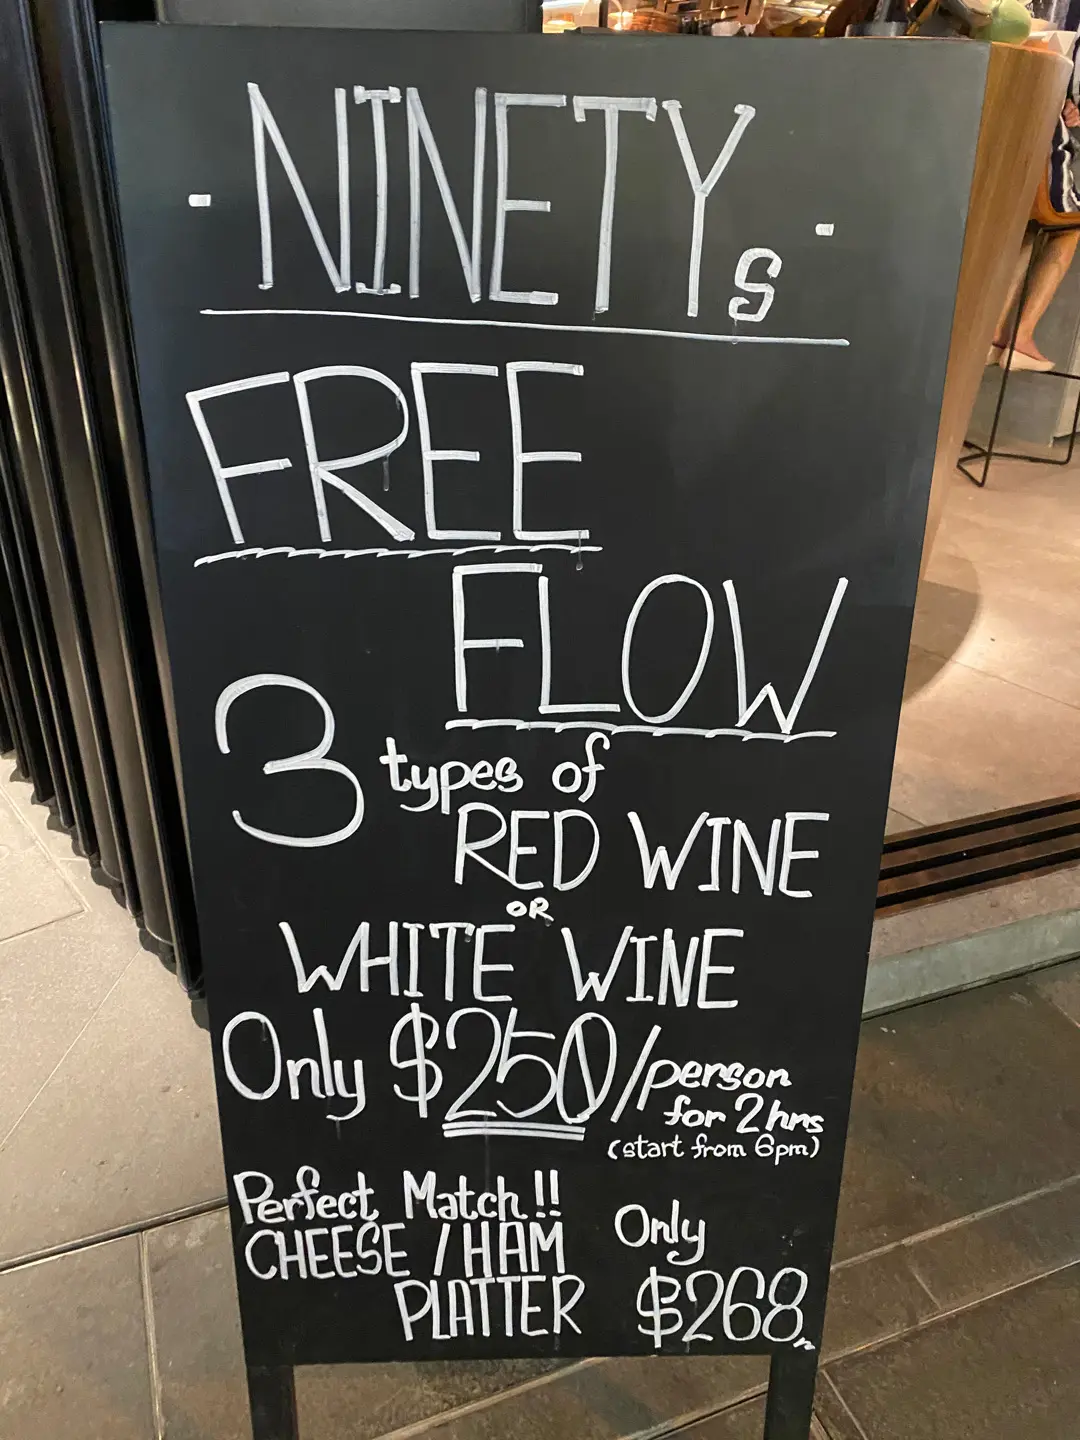 - NINETYs -
FREE
FLOW
3 types of
RED WINE
OR
WHITE WINE
Only $250/person
for 2hrs
(start from 6pm)
Perfect Match!!
CHEESE /HAM
PLATTER
Only
$268